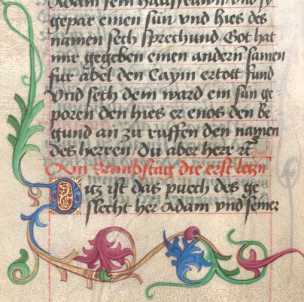 Adam sein hausfrawn vnd sy
gepar einen sun vnd hies des
namen seth sprechund Got hat
mir gegeben einen andern samen
für abel den Caym ertott hund
Vnd seth dem ward ein sun ge
poren den hies er enos der be
gund an zu ruffen den namen
des herren Du aber herr etc
Am Samstag die erst letzn
Daz ist das puech des ge
slecht her Adam vnd seiner